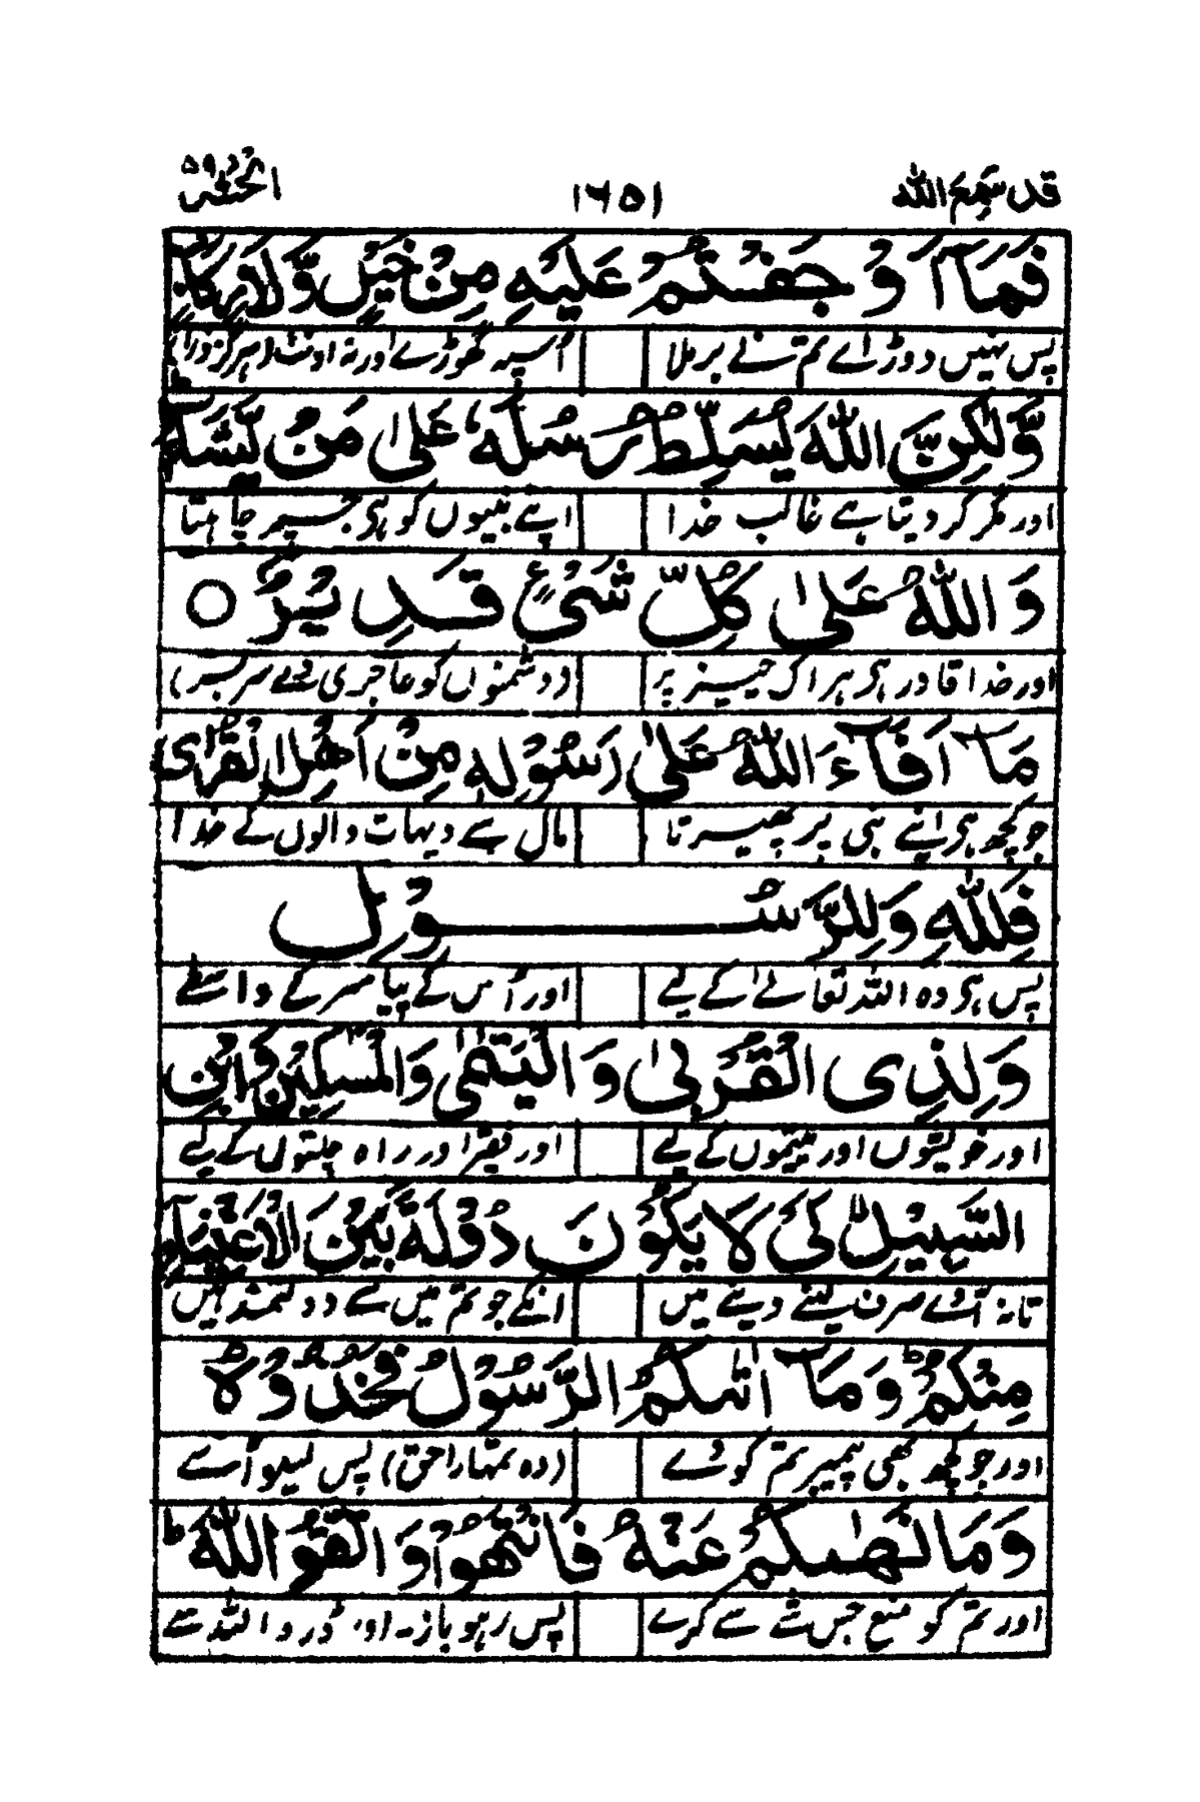 قد سمع الله ١٦٥١ الحشر ٥٩
فَمَآ اَوْجَفْتُمْ عَلَيْهِ مِنْ خَيْلٍ وَّلَا رِكَابٍ
پس نہیں دوڑائے تم نے برملا اُسپہ گھوڑے اور نہ اونٹ (ہرگز ذرا)
وَّلٰكِنَّ اللّٰهَ يُسَلِّطُ رُسُلَهٗ عَلٰى مَنْ يَّشَآءُ ط
اور مگر کر دیتا ہے غالب خدا اپنے نبیوں کو ہی جسپر چاہتا
وَاللّٰهُ عَلٰى كُلِّ شَىْءٍ قَدِيْرٌ ○
اور خدا قادر ہی ہر اک چیز پر (دشمنوں کو عاجزی دے سربسر)
مَآ اَفَآءَ اللّٰهُ عَلٰى رَسُوْلِهٖ مِنْ اَهْلِ الْقُرٰى
جو کچھ ہی اپنے نبی پر پھیرتا مال سے دیہات والوں کے خدا
فَلِلّٰهِ وَلِلرَّسُوْلِ
پس ہی وہ اللہ تعالےٰ کے لیے اور اُس کے پیامبر کے واسطے
وَلِذِى الْقُرْبٰى وَالْيَتٰمٰى وَالْمَسٰكِيْنِ وَابْنِ
اور خویشوں اور یتیموں کے لیے اور فقرا اور راہ چلتوں کے لیے
السَّبِيْلِ كَىْ لَا يَكُوْنَ دُوْلَةً بَيْنَ الْاَغْنِيَآءِ
تا نہ آئے صرف لینے دینے میں انکے جو تم میں سے دولتمند ہیں
مِنْكُمْ ط وَمَآ اٰتٰىكُمُ الرَّسُوْلُ فَخُذُوْهُ
اور جو کچھ بھی پیمبر تم کو دے (وہ تمہارا حق) پس لیلو اُسے
وَمَا نَهٰىكُمْ عَنْهُ فَانْتَهُوْا وَاتَّقُوا اللّٰهَ ط
اور تم کو منع جس شے سے کرے پس رہو باز اور ڈرو اللہ سے